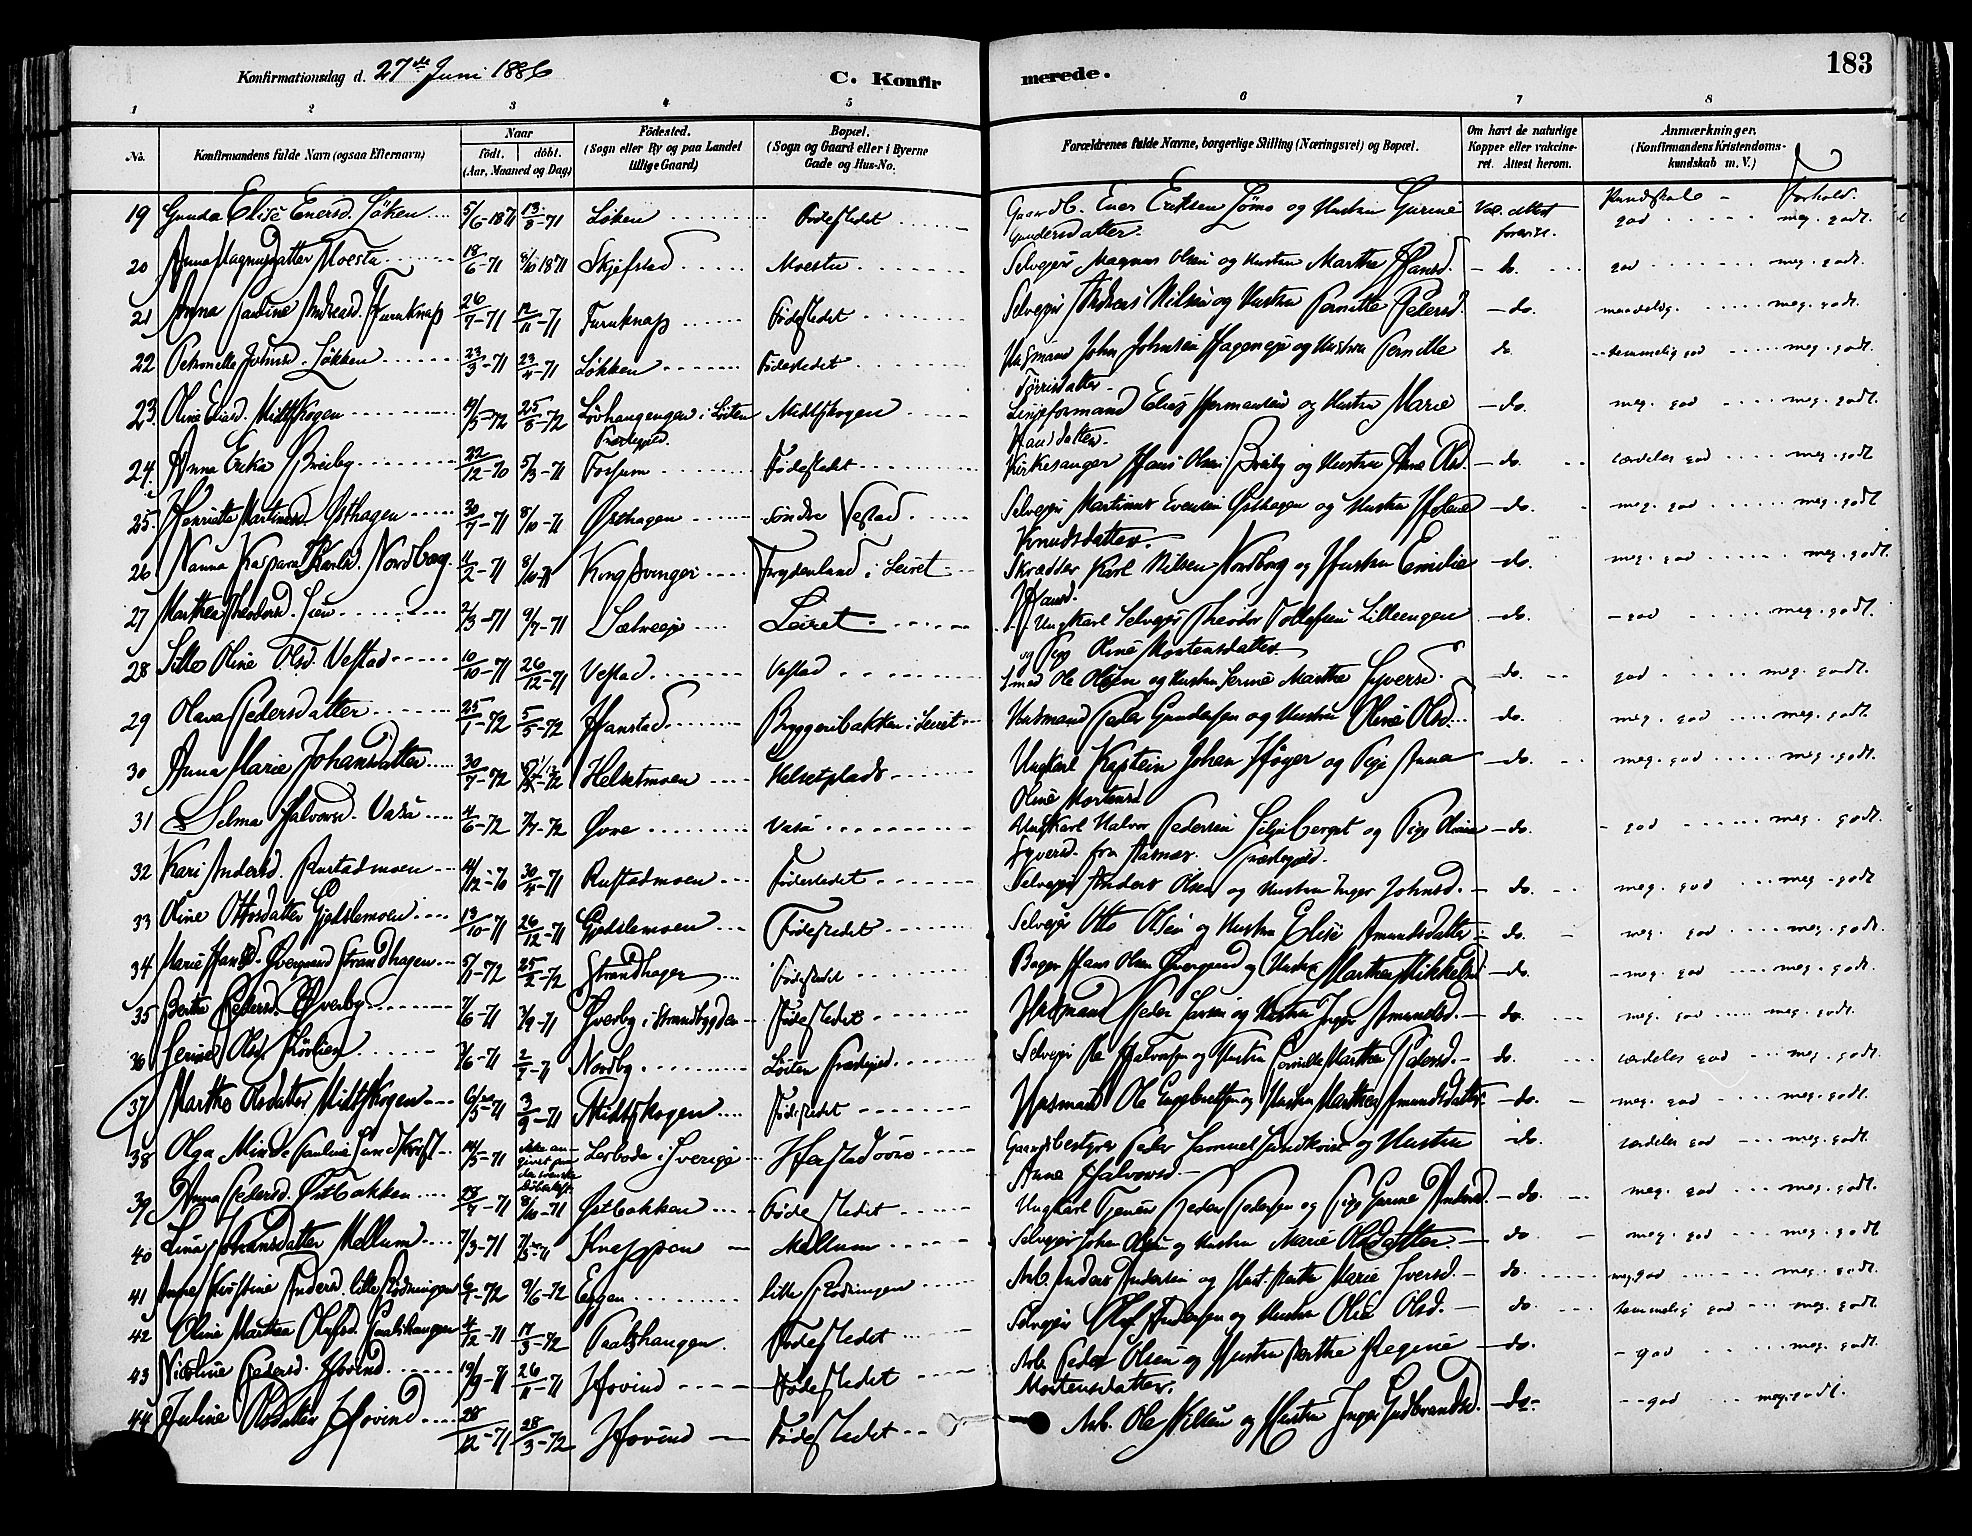 Konfirmationsdag d. 27de Juni 1886 C. Konfirmerede. 183
1 2 3 4 5 6 7 8
No. Konfirmandens fulde Navn (ogsaa Efternavn) Naar födt. döbt. (Aar, Maaned og Dag) Födested. (Sogn eller By og paa Landet tillige Gaard) Bopæl. (Sogn og Gaard eller i Byerne Gade og Hus-No. Forældrenes fulde Navne, borgerlige Stilling (Næringsvei) og Bopæl. Om havt de naturlige Kopper eller vakcineret. Attest herom. Anmærkninger. (Konfirmandens Kristendomskundskab m. V.)
Kundskab - Forhold.
19 Gunda Elise Enersd. Löken 5/6-1871 13/8-71 Löken Födestedet Gaardb. Ener Eriksen Löms og Hustru Gurine Vac. attest god meg. godt.
Gundersdatter. forevist.
20 Anna Magnusdatter Moestu 18/6-71 8/10 1871 Skjefstad Moestu Selveier Magnus Olsen og Hustru Marthe Hansd. - do. god meg. godt.
21 Anna Pauline Andreasd. Furuknap 26/7-71 12/11-71 Furuknap Födestedet Selveier Andreas Nilsen og Hustru Pernille Pedersd. - do. maadelig. meg. godt.
22 Petronelle Johnsd. Løkken 23/3-71 23/4-71 Løkken Födestedet Husmand John Johnsen Hageneje og Hustru Pernille do. temmelig god meg. godt.
Törrisdatter.
23. Oline Eliasd. Midtskogen 19/5-72 25/8-72 Lövhangengen i Löiten Midtskogen Linjeformand Elias Hermansen og Hustru Marie - do. meg. god meg. godt.
Præstegjeld. Hansdatter.
24. Anna Erika Breiby 22/12-70 5/3-71 Fossum Födestedet Kirkesanger Hans Olsen Breiby og Hustru Anne Olsd. - do. særdeles god meg. godt
25. Henriette Martinusd. Østhagen 30/7-71 8/10-71 Østhagen Söndre Vestad Selveier Martinus Evensen Østhagen og Hustru Helene - do. meg. god meg. godt
Knudsdatter.
26 Nanna Kaspara Karlsd. Nordbog 11/2-71 8/10-71 Kongsvinger Frydenlund i Leiret Skrædder Karl Nilsen Nordborg og Hustru Emilie - do. meg. god meg. godt.
Hansd.
27 Marthea Theodorsd. Lien 2/3-71 9/7-71 Sætreeje Leiret Ungkarl Selveier Theodor Tollefsen Lilleengen - do. - god meg. godt.
og Pige Oline Mortensdatter.
28 Sille Oline Olsd. Vestad 10/10-71 26/12-71 Vestad. Vestad Smed Ole Olsen og Hustru Serine Marthe Syversd. - do. god meg. godt.
29 Olava Pedersdatter 25/1-72 5/5-72 Hanstad Bryggeribakken i Leiret Husmand Peder Gundersen og Hustru Oline Olsd. - do. meg. god meg. godt.
30 Anna Marie Johansdatter 30/7-72 Helsetmoen Helsetplads Ungkarl Kaptein Johan Höyer og Pige Anna - do. meg. god meg. godt.
Oline Mortensd.
31 Selma Halvorsd. Vasu 4/6-72 7/7-72 Øvre Vasu Ungkarl Halvor Pedersen Siljuberget og Pige Oline - do. - god meg. godt.
Syversd. fra Aasnæs. Præstegjeld.
32 Kari Andersd. Rustadmoen 14/12-70 30/4-71 Rustadmoen Födestedet Selveier Anders Olsen og Hustru Inger Johnsd. - do. meg. god meg. godt
33 Oline Ottosdatter Gjedslemoen 13/10-71 26/12-71 Gjedslemoen Födestedet Selveier Otto Olsen og Hustru Elise Amundsdatter - do. meg. god meg. godt.
34 Marie Hansd. Øvergaard Strandhagen 5/1-72 25/2-72 Strandhagen Födestedet Bager Hans Olsen Øvergaard og Hustru Marthea Mikkelsd. - do. meg. god meg. godt.
35 Berthe Pedersd. Øverby 7/6-71 3/9-71 Øverby i Strandbygden Födestedet Husmand Peder Larsen og Hustru Inger Amundsd. - do. meg. god meg. godt.
36 Serine Olsd. 7/6-71 2/7-71 Nordby Löiten Præstegjeld. Selveier Ole Halvorsen og Hustru Pernille Marthea Pedersd. - do. særdeles god meg. godt.
37 Marthe Olsdatter Midtskogen 6/5-71 3/9-71 Midtskogen Födestedet Husmand Ole Engebretsen og Hustru Marthea Amundsdatter - do. meg. god meg. godt.
38 Olga Minda Pauline Sandkvist 14/5-71 ikke angivet paa den svenske Döbeattest. Lerboda i Sverige Hierstad övre Gaardsbestyrer Peder Samuel Sandkvist og Hustru do. særdeles god meg. godt
Anne Halvorsd.
39 Anna Pedersd. Østbakken 8/10-71 Østbakken Födestedet Ungkarl Tjener Peder Pedersen og Pige Gurine Andersd. - do. meg. god meg. godt.
40 Lina Johansdatter Mellum 7/3-71 7/5-71 Kneppen Mellum Selveier Johan Olsen og Hustru Marie Olsdatter. - do. meg. god meg. godt
41 Anne Kristine Andersd. lille Rødningen 6/1-72 9/6-72 Engen lille Rødningen Arb. Anders Andersen og Hust. Marthe Marie Iversd. - do. meg. god meg. godt.
42 Oline Marthea Olafsd. Paalshaugen 4/12-71 17/3-72 Paalshaugen. Födestedet Selveier Olaf Andersen og Hustru Olia Olsd. - do. temmelig god meg. godt.
43 Nicoline Pedersd. Hovind 19/9-71 26/11-71 Hovind Födestedet Arb. Peder Olsen og Hustru Berthe Regine - do. - god meg. godt
Mortensdatter.
44 Juline Olsdatter Hovind 28/12-71 28/3-72 Hovind Födestedet Arb. Ole Nilsen og Hustru Inger Gudbrandsd. - do - god meg. godt.